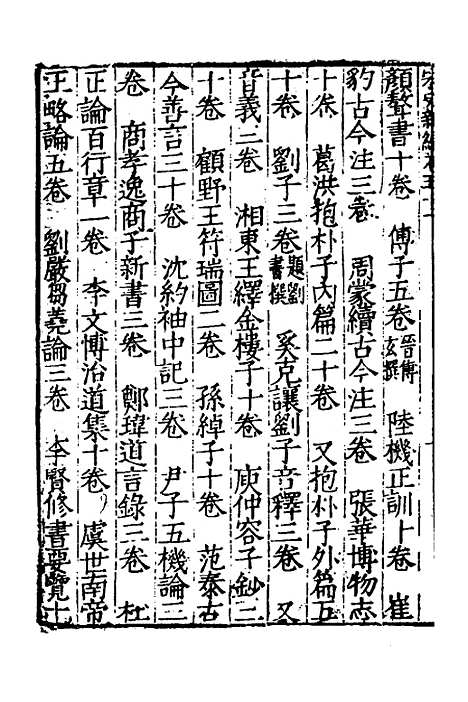 顏聱書十卷 傅子五卷晉傅玄撰 陸機正訓十卷 崔
豹古今注三卷 周蒙續古今注三卷 張華博物志
十卷 葛洪抱朴子內篇二十卷 又抱朴子外篇五
十卷 劉子三卷題劉書撰 奚克讓劉子音釋三卷 又
音義三卷 湘東王繹金樓子十卷 庾仲容子鈔三
十卷 顧野王符瑞圖二卷 孫綽子十卷 范泰古
今善言三十卷 沈約袖中記三卷 尹子五機論三
卷 商孝逸商子新書三卷 鄭瑋道言錄三卷 杜
正論百行章一卷 李文博治道集十卷 虞世南帝
王略論五卷 劉嚴芻蕘論三卷 李賢修書要覽十